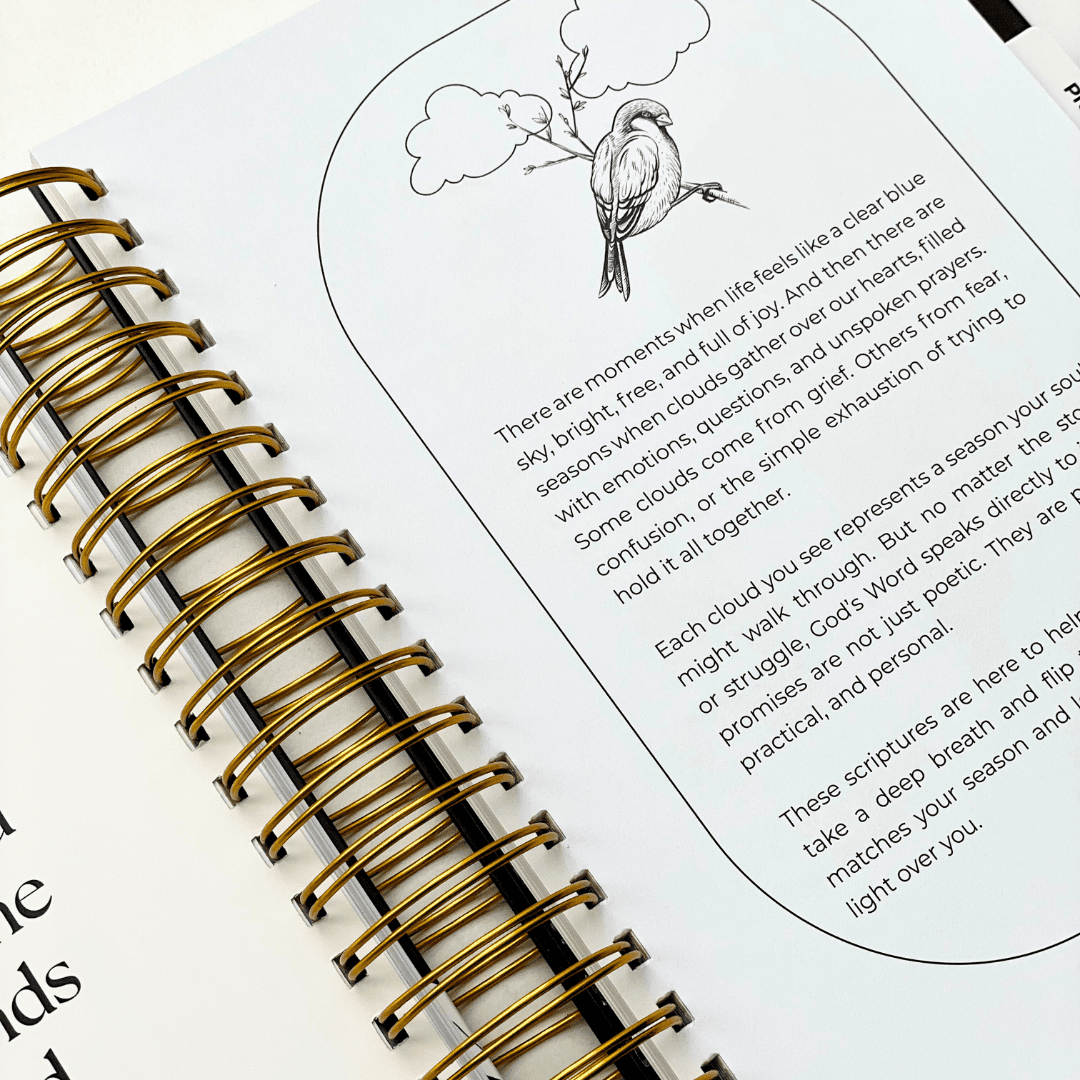 There are moments when life feels like a clear blue
sky, bright, free, and full of joy. And then there are
seasons when clouds gather over our hearts, filled
with emotions, questions, and unspoken prayers.
Some clouds come from grief. Others from fear,
confusion, or the simple exhaustion of trying to
hold it all together.
Each cloud you see represents a season your soul
might walk through. But no matter the
or struggle, God's Word speaks directly to
promises are not just poetic. They are
practical, and personal.
These scriptures are here to help
take a deep breath and flip
matches your season and
light over you.